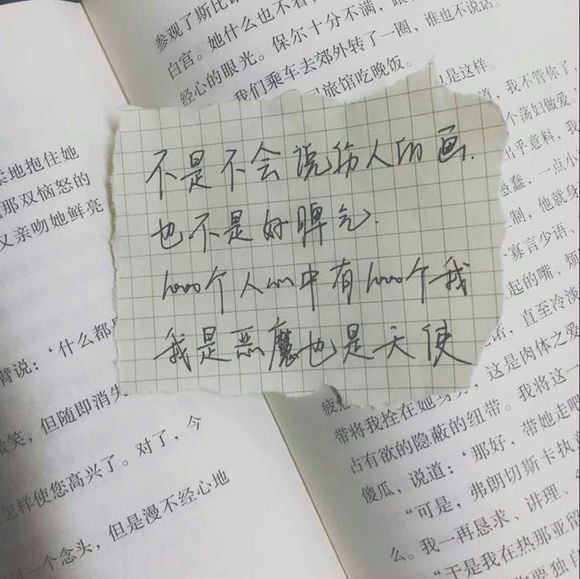 参观了斯比
白宫。她什么也不看
经心的眼光。保尔十分不满，跟
我们乘车去郊外转了一圈，谁也不说话。
旅馆吃晚饭。
是这样。
道，我不管你了，
个荡妇做爱，
出乎意料，我
蠢。一点小
制，他就身
寡言少语、
起的嘴、烦
直至冷淡
不是不会说伤人的画.
也不是好脾气.
1000个人心中有1000个我
我是恶魔也是天使
地抱住她
那双恼怒的
又亲吻她鲜亮
说：‘什么都
微笑，但随即消失
怎样使您高兴了。对了，今
一个念头，但是漫不经心地
这是肉体之爱
带将我拴在她
占有欲的隐蔽的纽带。我将这一
傻瓜，说道：‘那好，带她走
“可是，弗朗切斯卡执
么。我一再恳求、讲理、
“于是我在热那亚留
要独自